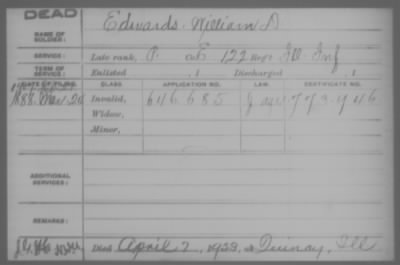 DEAD
NAME OF SOLDIER: Edwards William D
SERVICE: Late rank, P. Co F 122 Reg't Ill. Inf
TERM OF SERVICE: Enlisted , 1 Discharged , 1
DATE OF FILING. CLASS. APPLICATION NO. LAW. CERTIFICATE NO.
1888 Mar 20 Invalid, 646685
Widow,
Minor,
ADDITIONAL SERVICES:
REMARKS:
Died April 7, 1923, at Quincy, Ill